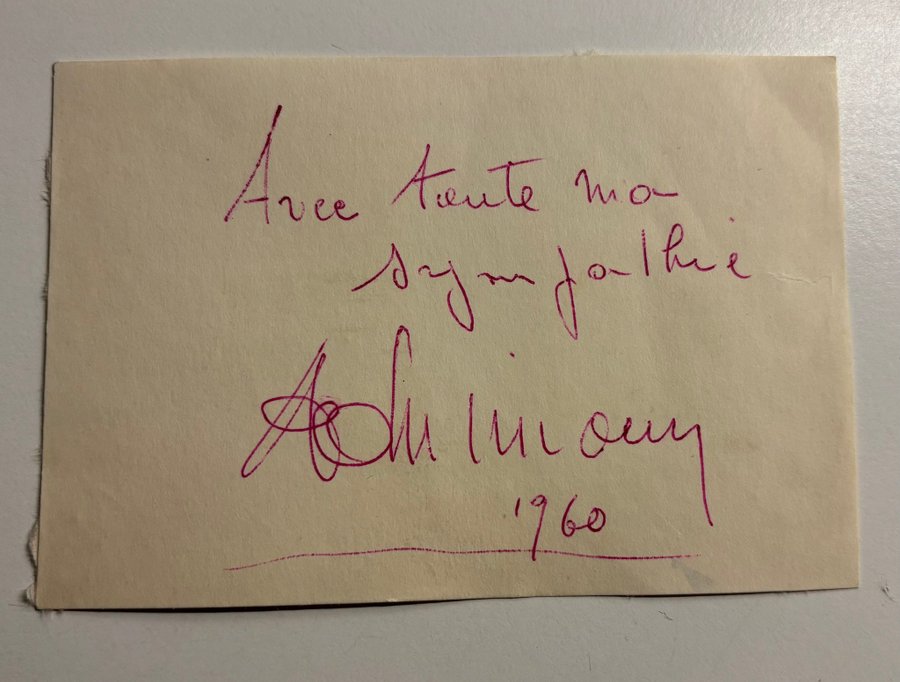 Avec toute ma
sympathie
1960